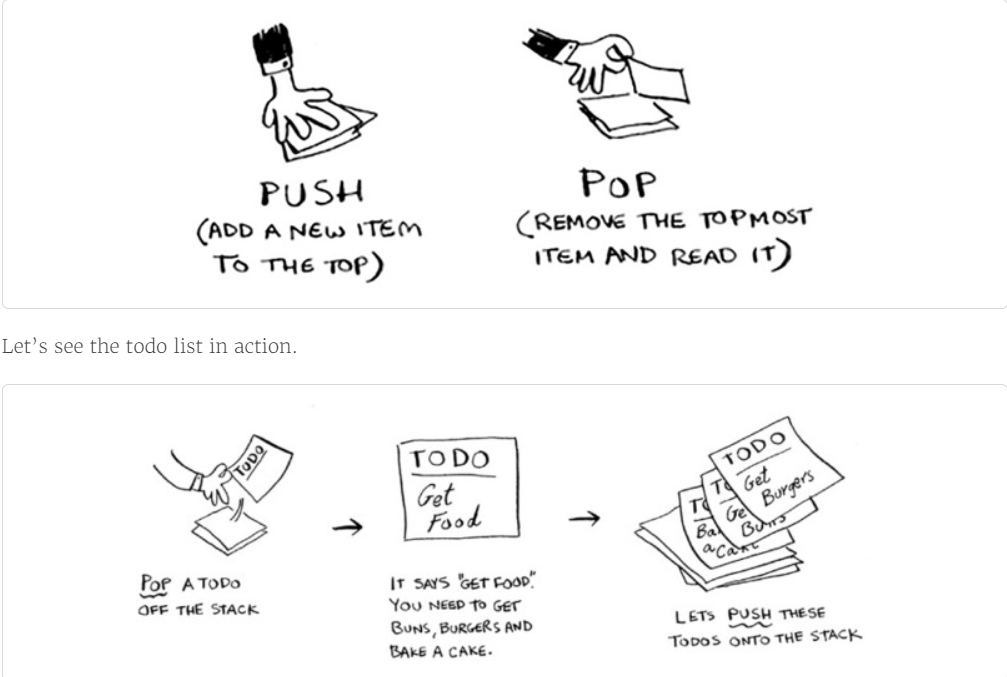 PUSH
(ADD A NEW ITEM
TO THE TOP)
POP
(REMOVE THE TOPMOST
ITEM AND READ IT)
Let’s see the todo list in action.
TODO
POP A TODO
OFF THE STACK
TODO
Get
Food
IT SAYS "GET FOOD."
YOU NEED TO GET
BUNS, BURGERS AND
BAKE A CAKE.
TODO
Get
Burgers
TO
Ge
Buns
TO
Ba
a Cake
LETS PUSH THESE
TODOS ONTO THE STACK